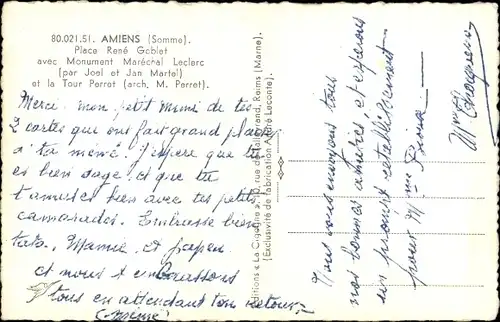 80.021.51. AMIENS (Somme).
Place René Goblet
avec Monument Maréchal Leclerc
(par Joel et Jan Martel)
et la Tour Perrot (arch. M. Perret).
Merci mon petit mimi de tes
2 cartes que ont fait grand plaisir
a ta mémé. J'espère que tu
es bien sage et que tu
t'amuses bien avec tes petits
camarades. Embrasse bien
tata, Mamie et papa
et nous t'embrassons
tous en attendant ton retour
(mimi)
Editions « La Cigogne », rue de Talleyrand, Reims (Marne).
(Exclusivité de fabrication André Leconte).
Nous vous envoyons tous
nos bonnes amitiés et espérons
un prompt rétablissement
pour Mme
Mme